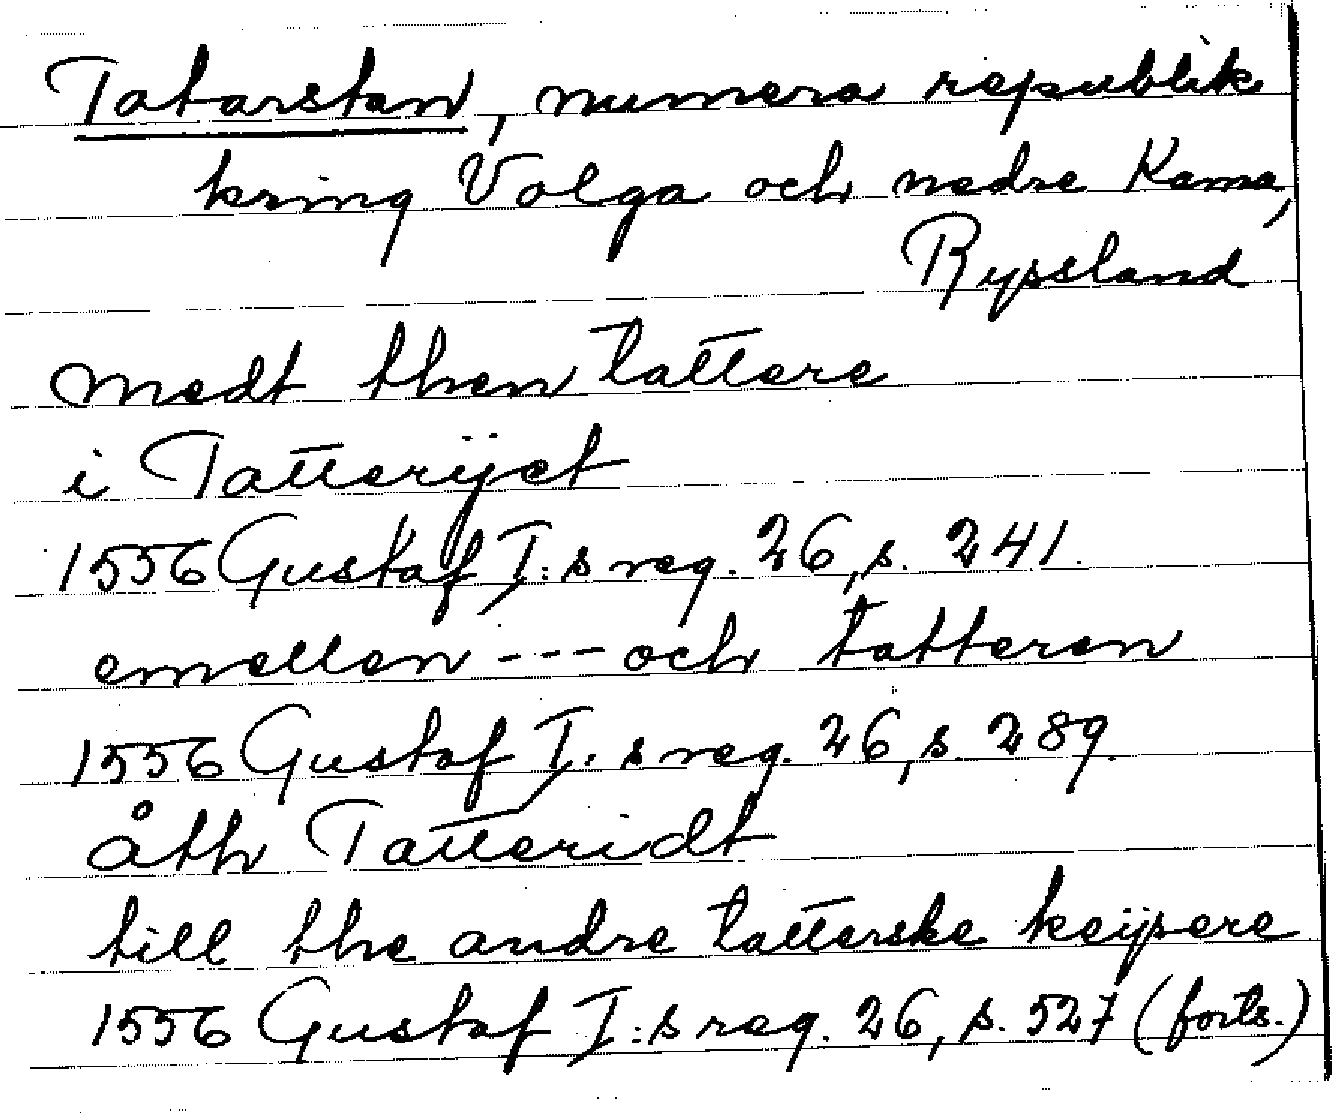 Tatarstan, numera republik
kring Volga och nedre Kama,
Ryssland
medt then tattere
i Tatterijet
1556 Gustaf I:s reg. 26, s. 241.
emellen --- och tatteren
1556 Gustaf I:s reg. 26, s. 289.
åth Tatteridt
till the andre tatterske keijsere
1556 Gustaf I:s reg. 26, s. 527 (forts.)